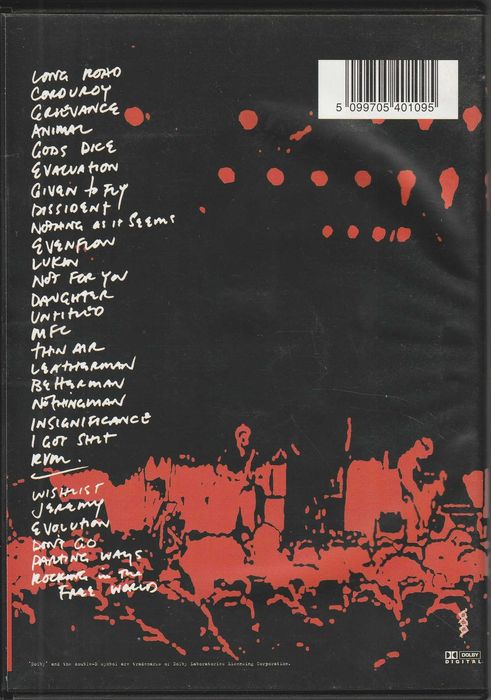 LONG ROAD
CORDUROY
GRIEVANCE
ANIMAL
GODS DICE
EVACUATION
GIVEN to FLY
DISSIDENT
NOTHING AS it SEEMS
EVENFLOW
LUKIN
NOT FOR YOU
DAUGHTER
UNTITLED
MFC
tHIN AIR
LEATHERMAN
BEttERMAN
NOTHINGMAN
INSIGNIFICANCE
I GOT SHIT
RVM.
WISHLIST
JEREMY
EVOLUTION
DON'T GO
PARTING WAYS
ROCKING in the
FREE WORLD
5 099705 401095
DOLBY
DIGITAL
"Dolby" and the double-D symbol are trademarks of Dolby Laboratories Licensing Corporation.